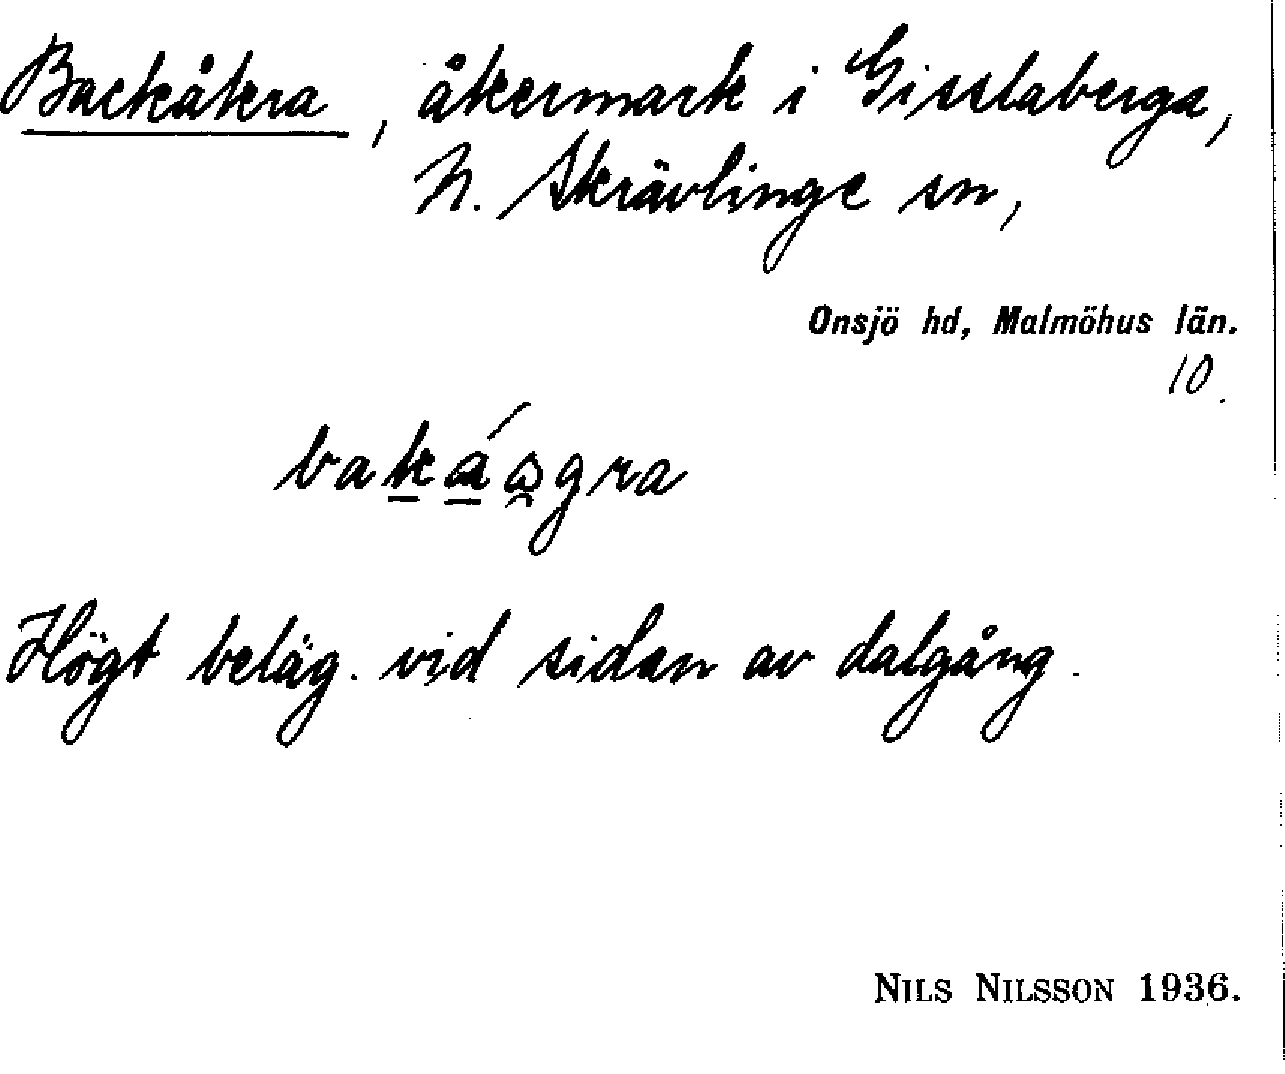 Backåkra, åkermark i Gisslaberga,
N. Skrävlinge sn,
Onsjö hd, Malmöhus län.
10.
Högt beläg. vid sidan av dalgång.
NILS NILSSON 1936.